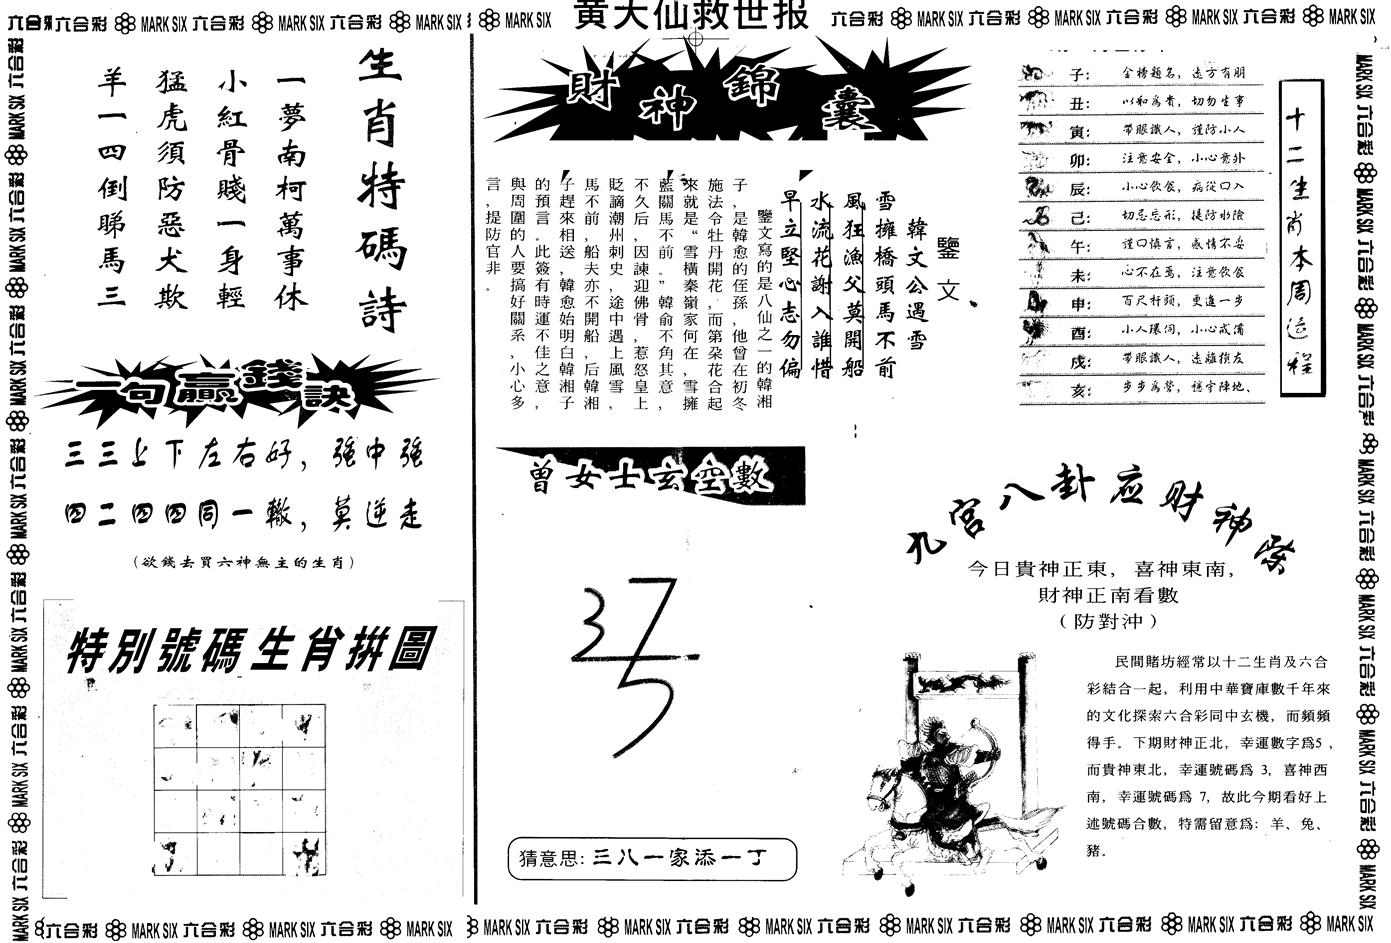 黄大仙救世报
六合彩 MARK SIX 六合彩 MARK SIX 六合彩 MARK SIX
生肖特碼詩
一夢南柯萬事休
小紅骨賤一身輕
猛虎須防惡犬欺
羊一四倒睇馬三
一句贏錢訣
三三上下左右好，強中強
四二四四同一轍，莫逆走
（欲錢去買六神無主的生肖）
特別號碼生肖拼圖
財神錦囊
鑒文
韓文公遇雪
雪擁橋頭馬不前
風狂漁父莫開船
水流花謝入誰惜
早立堅心志勿偏
鑒文寫的是八仙之一的韓湘
子，是韓愈的侄孫，他曾在初冬
施法令牡丹開花，而第朵花合起
來就是“雪橫秦嶺家何在，雪擁
藍關馬不前。”韓俞不角其意，
不久后，因諫迎佛骨，惹怒皇上
貶謫潮州刺史，途中遇上風雪，
馬不前，船夫亦不開船，后韓湘
子趕來相送，韓愈始明白韓湘子
的預言。此簽有時運不佳之意，
與周圍的人要搞好關系，小心多
言，提防官非。
曾女士玄空數
37
5
猜意思：三八一家添一丁
十二生肖本周运程
子：金榜題名，遠方有朋
丑：以和為貴，切勿生事
寅：帶眼識人，謹防小人
卯：注意安全，小心意外
辰：小心飲食，病從口入
己：切忌忘形，提防水險
午：謹口慎言，感情不妥
未：心不在焉，注意飲食
申：百尺杆頭，更進一步
酉：小人環伺，小心戒備
戌：帶眼識人，遠離損友
亥：步步為營，穩守陣地、
九宫八卦应财神
今日貴神正東，喜神東南，
財神正南看數
（防對沖）
民間賭坊經常以十二生肖及六合
彩結合一起，利用中華寶庫數千年來
的文化探索六合彩同中玄機，而頻頻
得手。下期財神正北，幸運數字爲5，
而貴神東北，幸運號碼爲 3，喜神西
南，幸運號碼爲 7，故此今期看好上
述號碼合數，特需留意爲：羊、兔、
豬。